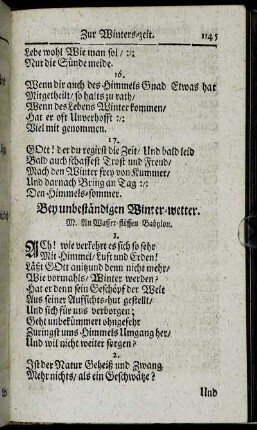 Zur Winters-zeit. 1145
Lebe wohl Wie man sol / :/:
Nur die Sünde meide.
16.
Wenn dir auch des Himmels Gnad Etwas hat
Mitgetheilt / so halts zu rath /
Wenn des Lebens Winter kommen /
Hat er oft Unverhofft :/:
Viel mit genommen.
17.
GOtt! der du regirst die Zeit / Und bald leid
Bald auch schaffest Trost und Freud /
Mach den Winter frey von Kummer /
Und darnach Bring an Tag :/:
Den Himmels-sommer.
Bey unbeständigen Winter-wetter.
M. An Wasser-flüssen Babylon.
1.
ACh! wie verkehrt es sich so sehr
Mit Himmel / Luft und Erden!
Läßt GOtt anitzund denn nicht mehr /
Wie vormahls / Winter werden?
Hat er denn sein Geschöpf der Welt
Aus seiner Aufsichts-hut gestellt /
Und sich für uns verborgen;
Geht unbekümmert ohngefehr
Zuringst ums Himmels Umgang her /
Und wil nicht weiter sorgen?
2.
Ist der Natur Geheiß und Zwang
Mehr nichts / als ein Geschwätze?
Und